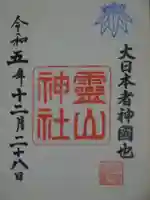 大日本者神國也
靈山
神社
令和五年十二月二十八日